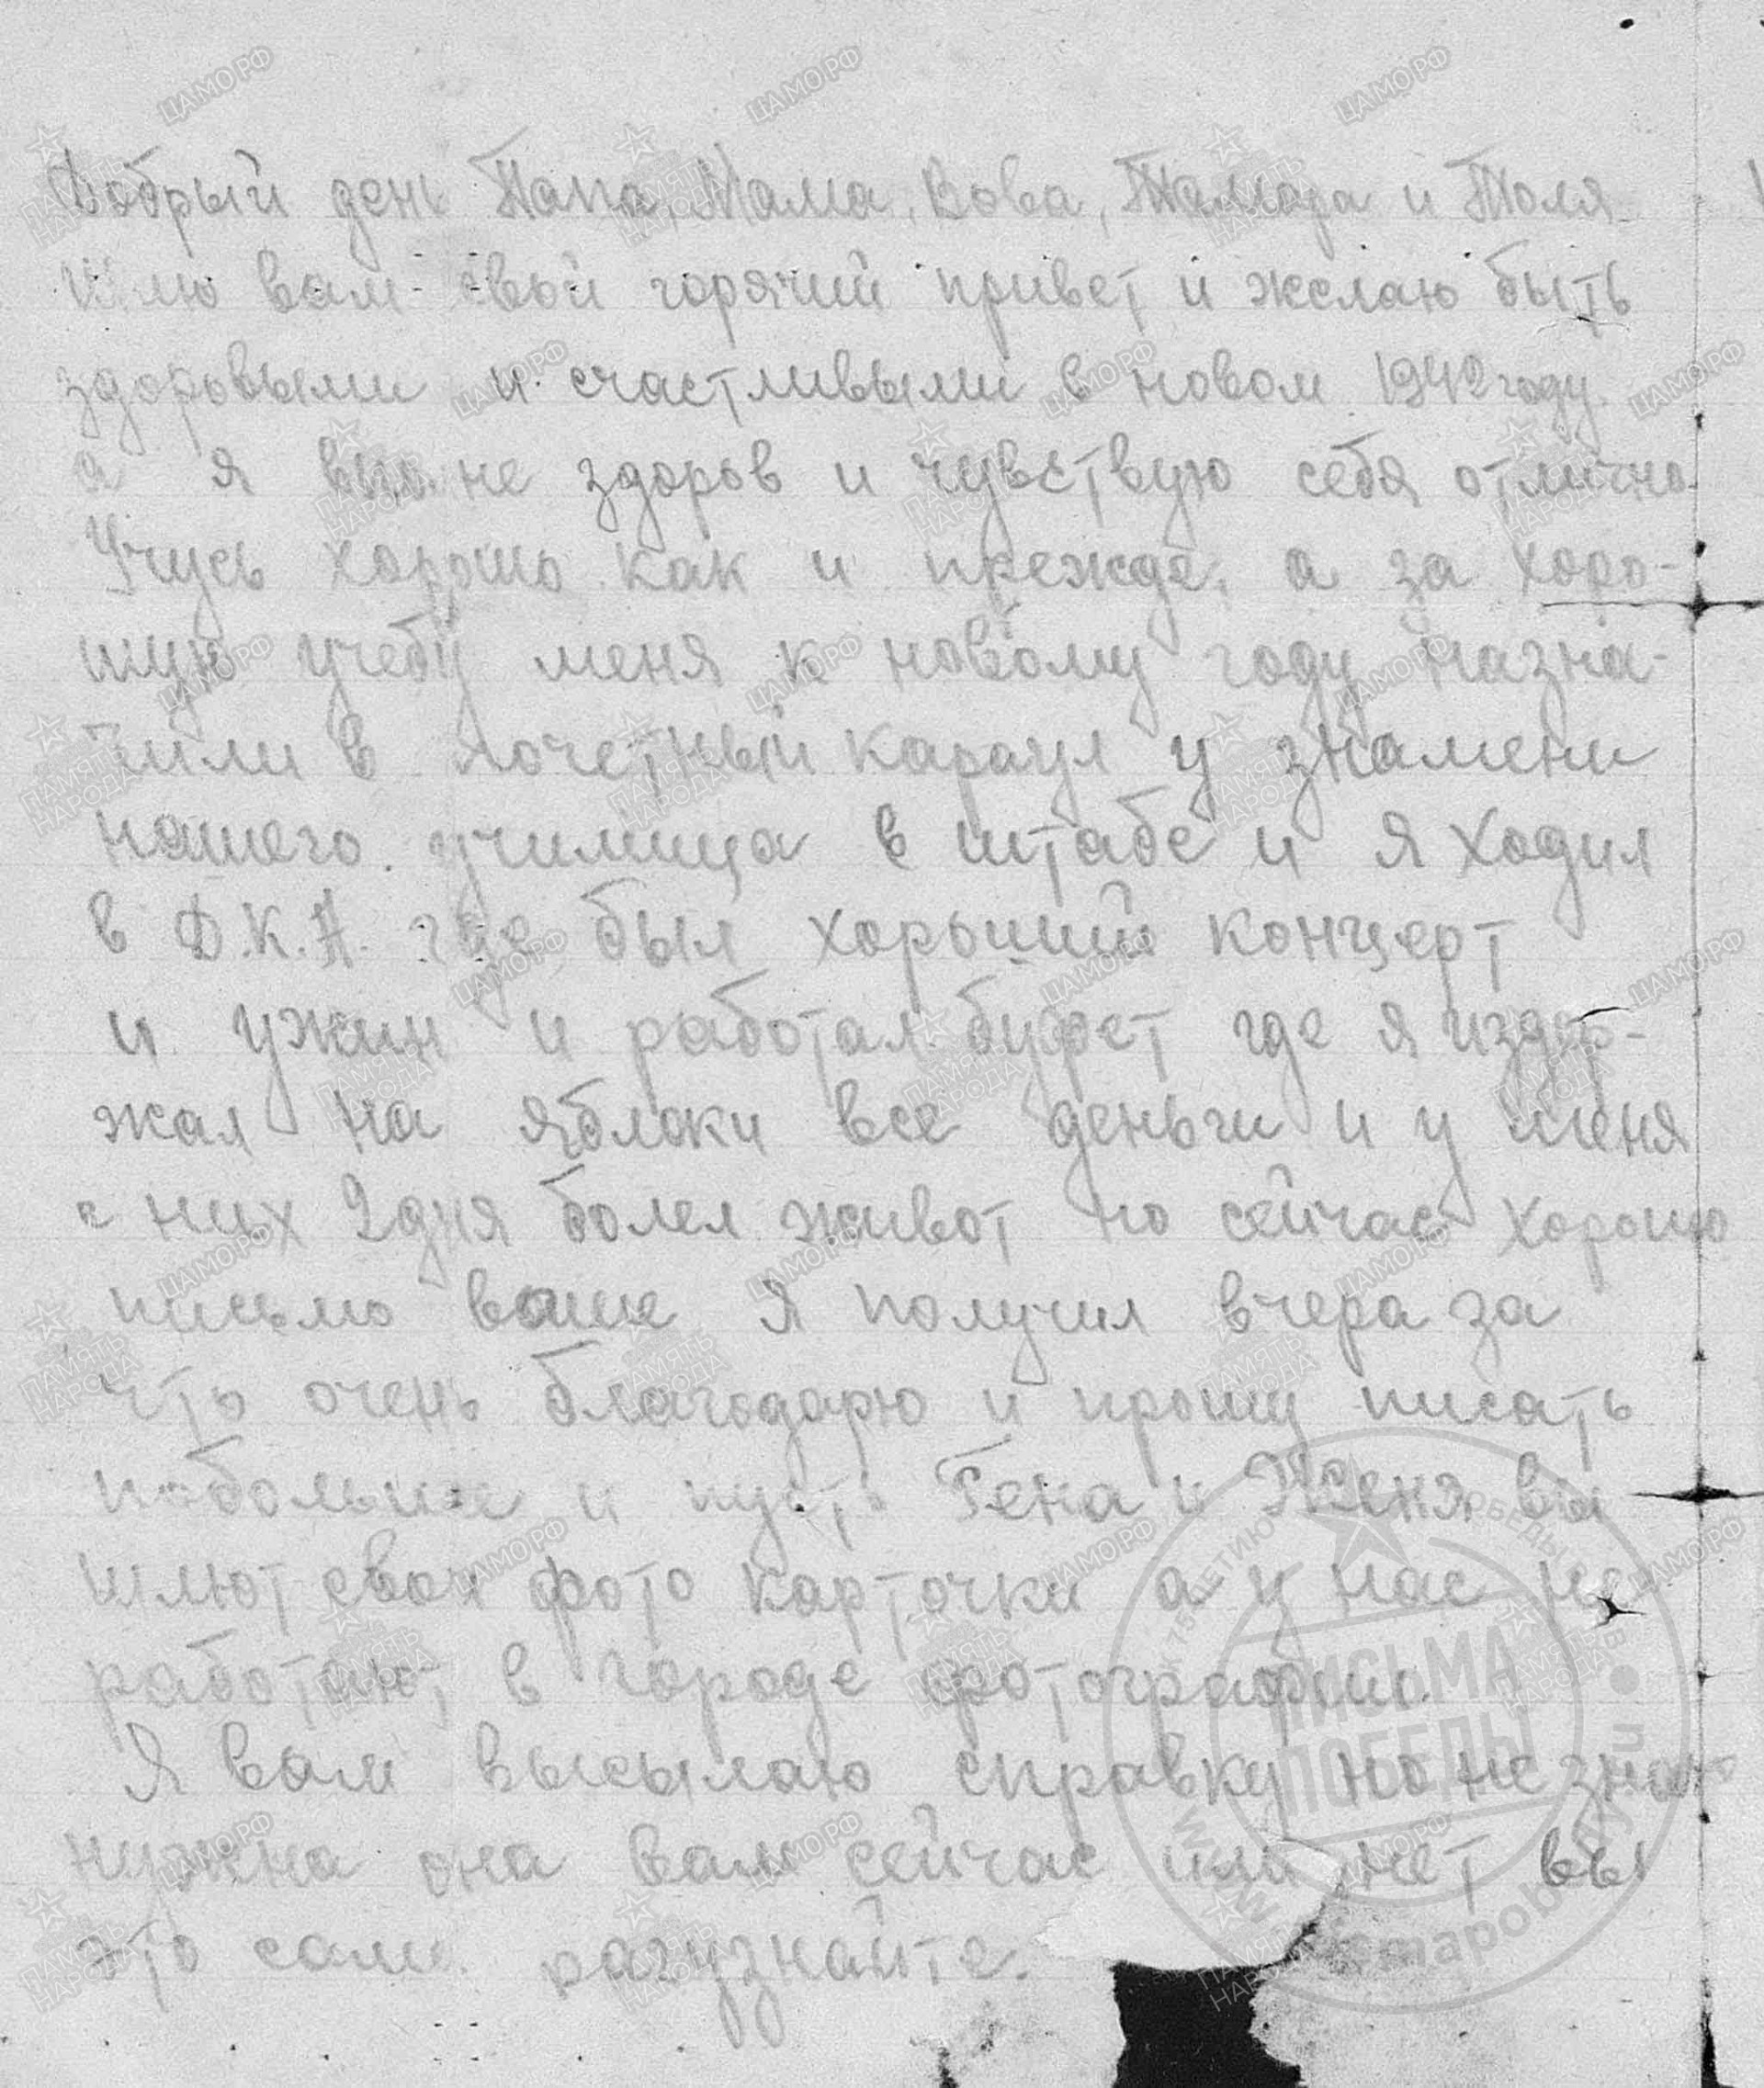 Добрый день Папа, Мама, Вова, Тамара и Толя
Шлю вам свой горячий привет и желаю быть
здоровыми и счастливыми в новом 1942 году.
а я вполне здоров и чувствую себя отлично
Учусь хорошо как и прежде, а за хоро-
шую учебу меня к новому году назна-
чили в почетный караул у знамени
нашего училища в штабе и я ходил
в Д.К.А. где был хороший концерт
и ужин и работал буфет где я издер-
жал на яблоки все деньги и у меня
с них 2 дня болел живот но сейчас хорошо
письмо ваше я получил вчера за
что очень благодарю и прошу писать
побольше и пусть Гена и Женя вы
шлют свои фото карточки а у нас не
работают в городе фотографии.
Я вам высылаю справку но не знаю
нужна она вам сейчас или нет вы
это сами разузнайте.
ПИСЬМА
ПОБЕДЫ
ПАМЯТЬ
НАРОДА
ЦАМО.РФ